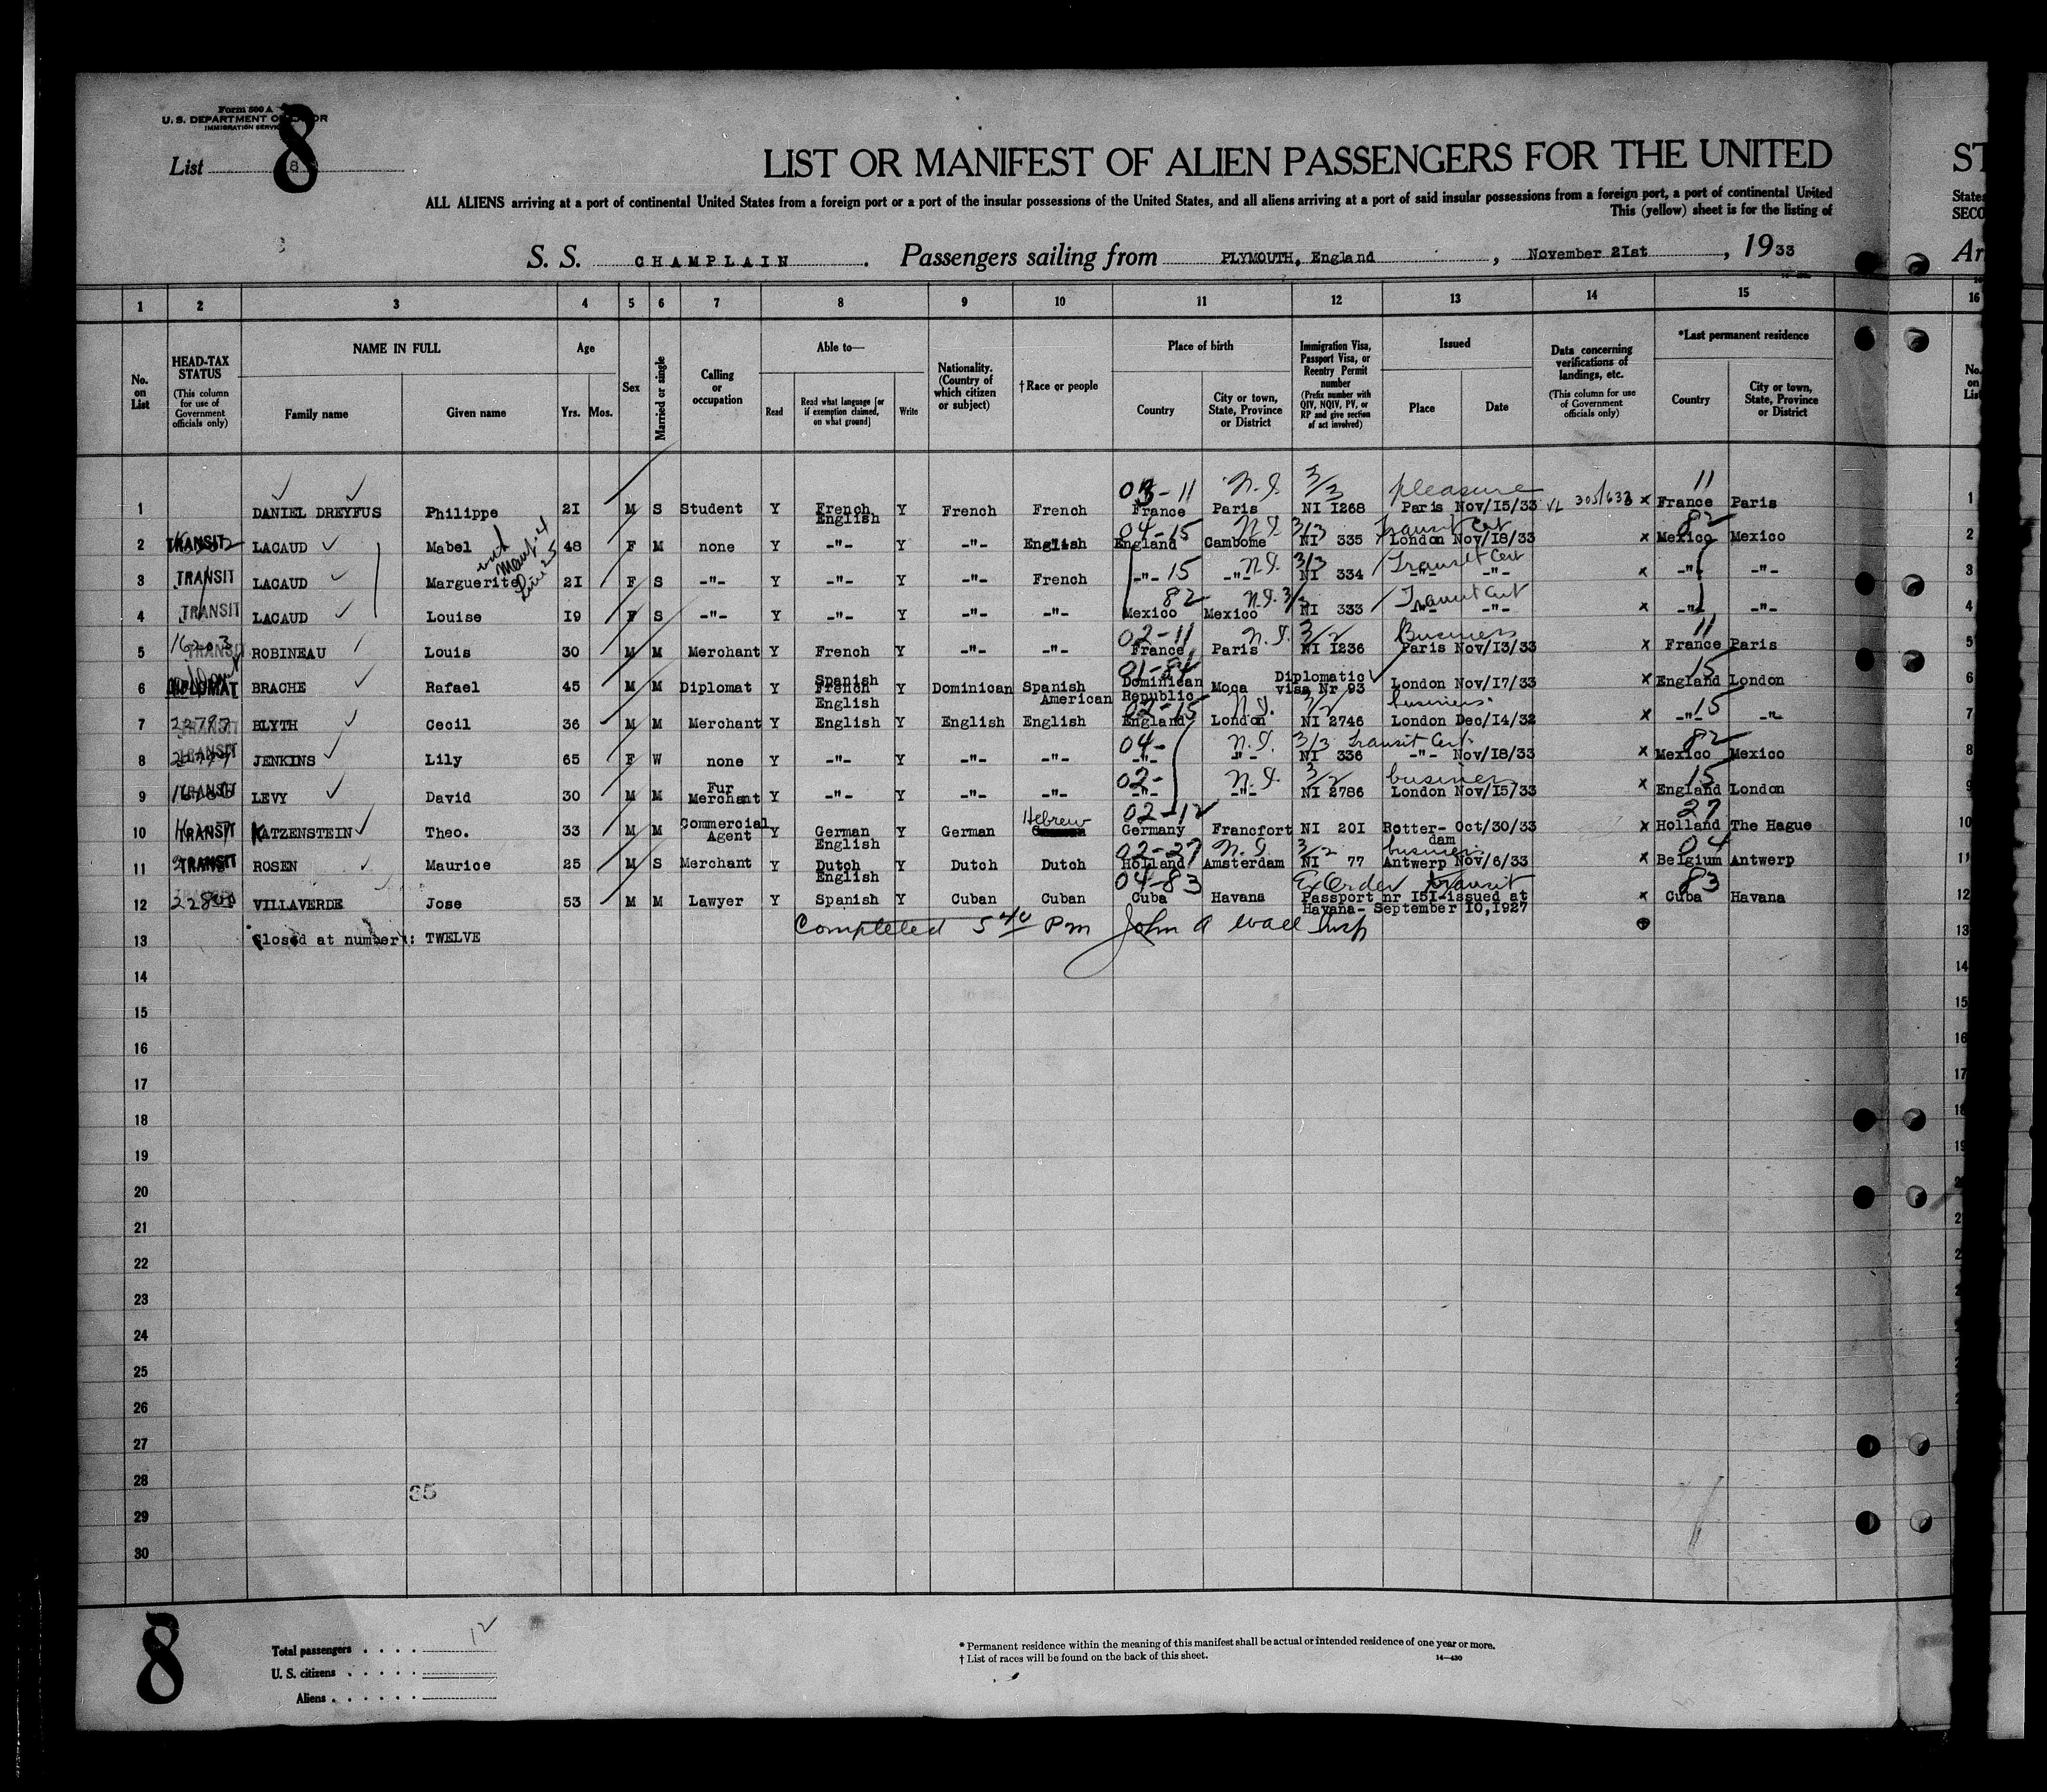 Form 500 A
U. S. DEPARTMENT OF LABOR
IMMIGRATION SERVICE
List 8
8
LIST OR MANIFEST OF ALIEN PASSENGERS FOR THE UNITED
ST
ALL ALIENS arriving at a port of continental United States from a foreign port or a port of the insular possessions of the United States, and all aliens arriving at a port of said insular possessions from a foreign port, a port of continental United
States
This (yellow) sheet is for the listing of
SECO
S. S. CHAMPLAIN. Passengers sailing from PLYMOUTH, England, November 2Ist, 1933
Ar
1 2 3 4 5 6 7 8 9 10 11 12 13 14 15 16
No. on List
HEAD-TAX STATUS (This column for use of Government officials only)
NAME IN FULL
Family name Given name
Age
Yrs. Mos.
Sex
Married or single
Calling or occupation
Able to—
Read
Read what language [or if exemption claimed, on what ground]
Write
Nationality. (Country of which citizen or subject)
†Race or people
Place of birth
Country
City or town, State, Province or District
Immigration Visa, Passport Visa, or Reentry Permit number (Prefix number with QIV, NQIV, PV, or RP and give section of act involved)
Issued
Place Date
Data concerning verifications of landings, etc. (This column for use of Government officials only)
*Last permanent residence
Country
City or town, State, Province or District
No. on List
03-11 N.I. 3/3 pleasure 11
1 DANIEL DREYFUS Philippe 2I M S Student Y French English Y French French France Paris NI I268 Paris Nov/I5/33 VL 305/633 x France Paris 1
with Manf. 4 Line 25
04-15 N.I. 3/3 Transit Cert 82
2 TRANSIT LACAUD Mabel 48 F M none Y -"- Y -"- English England Cambome NI 335 London Nov/I8/33 x Mexico Mexico 2
15 N.I. 3/3 Transit Cert
3 TRANSIT LACAUD Marguerite 2I F S -"- Y -"- Y -"- French -"- -"- NI 334 -"- -"- x -"- -"- 3
82 N.I. 3/3 Transit Cert
4 TRANSIT LACAUD Louise I9 F S -"- Y -"- Y -"- -"- Mexico Mexico NI 333 -"- -"- x -"- -"- 4
16203 02-11 N.I. 3/2 Business 11
5 TRANSIT ROBINEAU Louis 30 M M Merchant Y French Y -"- -"- France Paris NI I236 Paris Nov/I3/33 x France Paris 5
01-84 15
6 DIPLOMAT BRACHE Rafael 45 M M Diplomat Y Spanish French English Y Dominican Spanish American Dominican Republic Moca Diplomatic visa Nr 93 London Nov/I7/33 x England London 6
02-15 N.I. 3/2 business 15
7 TRANSIT BLYTH Cecil 36 M M Merchant Y English Y English English England London NI 2746 London Dec/I4/32 x -"- -"- 7
04- N.I. 3/3 Transit Cert. 82
8 TRANSIT JENKINS Lily 65 F W none Y -"- Y -"- -"- -"- -"- NI 336 -"- Nov/I8/33 x Mexico Mexico 8
02- N.I. 3/2 business 15
9 TRANSIT LEVY David 30 M M Fur Merchant Y -"- Y -"- -"- -"- -"- NI 2786 London Nov/I5/33 x England London 9
Hebrew 02-12 27
10 TRANSIT KATZENSTEIN Theo. 33 M M Commercial Agent Y German English Y German Germany Francfort NI 20I Rotter-dam Oct/30/33 x Holland The Hague 10
02-27 N.I. 3/2 business 04
11 TRANSIT ROSEN Maurice 25 M S Merchant Y Dutch English Y Dutch Dutch Holland Amsterdam NI 77 Antwerp Nov/6/33 x Belgium Antwerp 11
04-83 Ex Order transit 83
12 TRANSIT VILLAVERDE Jose 53 M M Lawyer Y Spanish Y Cuban Cuban Cuba Havana Passport nr I5I-issued at Havana- September I0,I927 x Cuba Havana 12
Completed 5 40 Pm John A Wall Insp
13 Closed at number: TWELVE 13
14 14
15 15
16 16
17 17
18 18
19 19
20
21
22
23
24
25
26
27
28
35
29
30
8
Total passengers 12
U. S. citizens
Aliens
* Permanent residence within the meaning of this manifest shall be actual or intended residence of one year or more.
† List of races will be found on the back of this sheet.
14—430